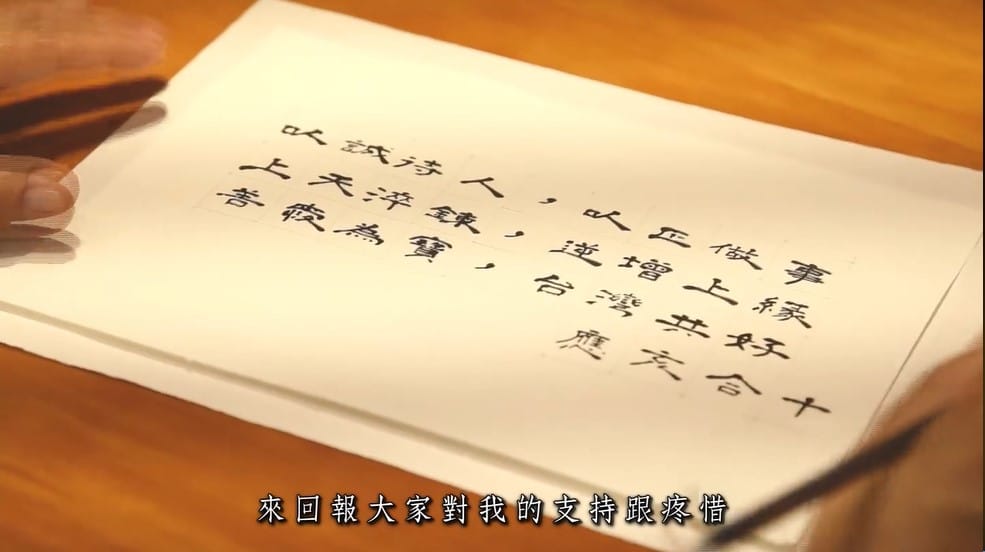 以誠待人，以正做事
上天淬鍊，逆增上緣
善護為寶，台灣共好
應亥合十
來回報大家對我的支持跟疼惜